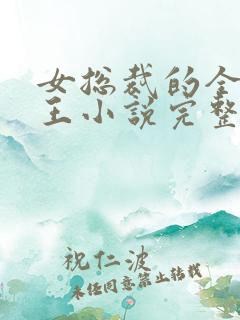 女总裁的全
王小说完整
祝仁波
未经同意禁止转载